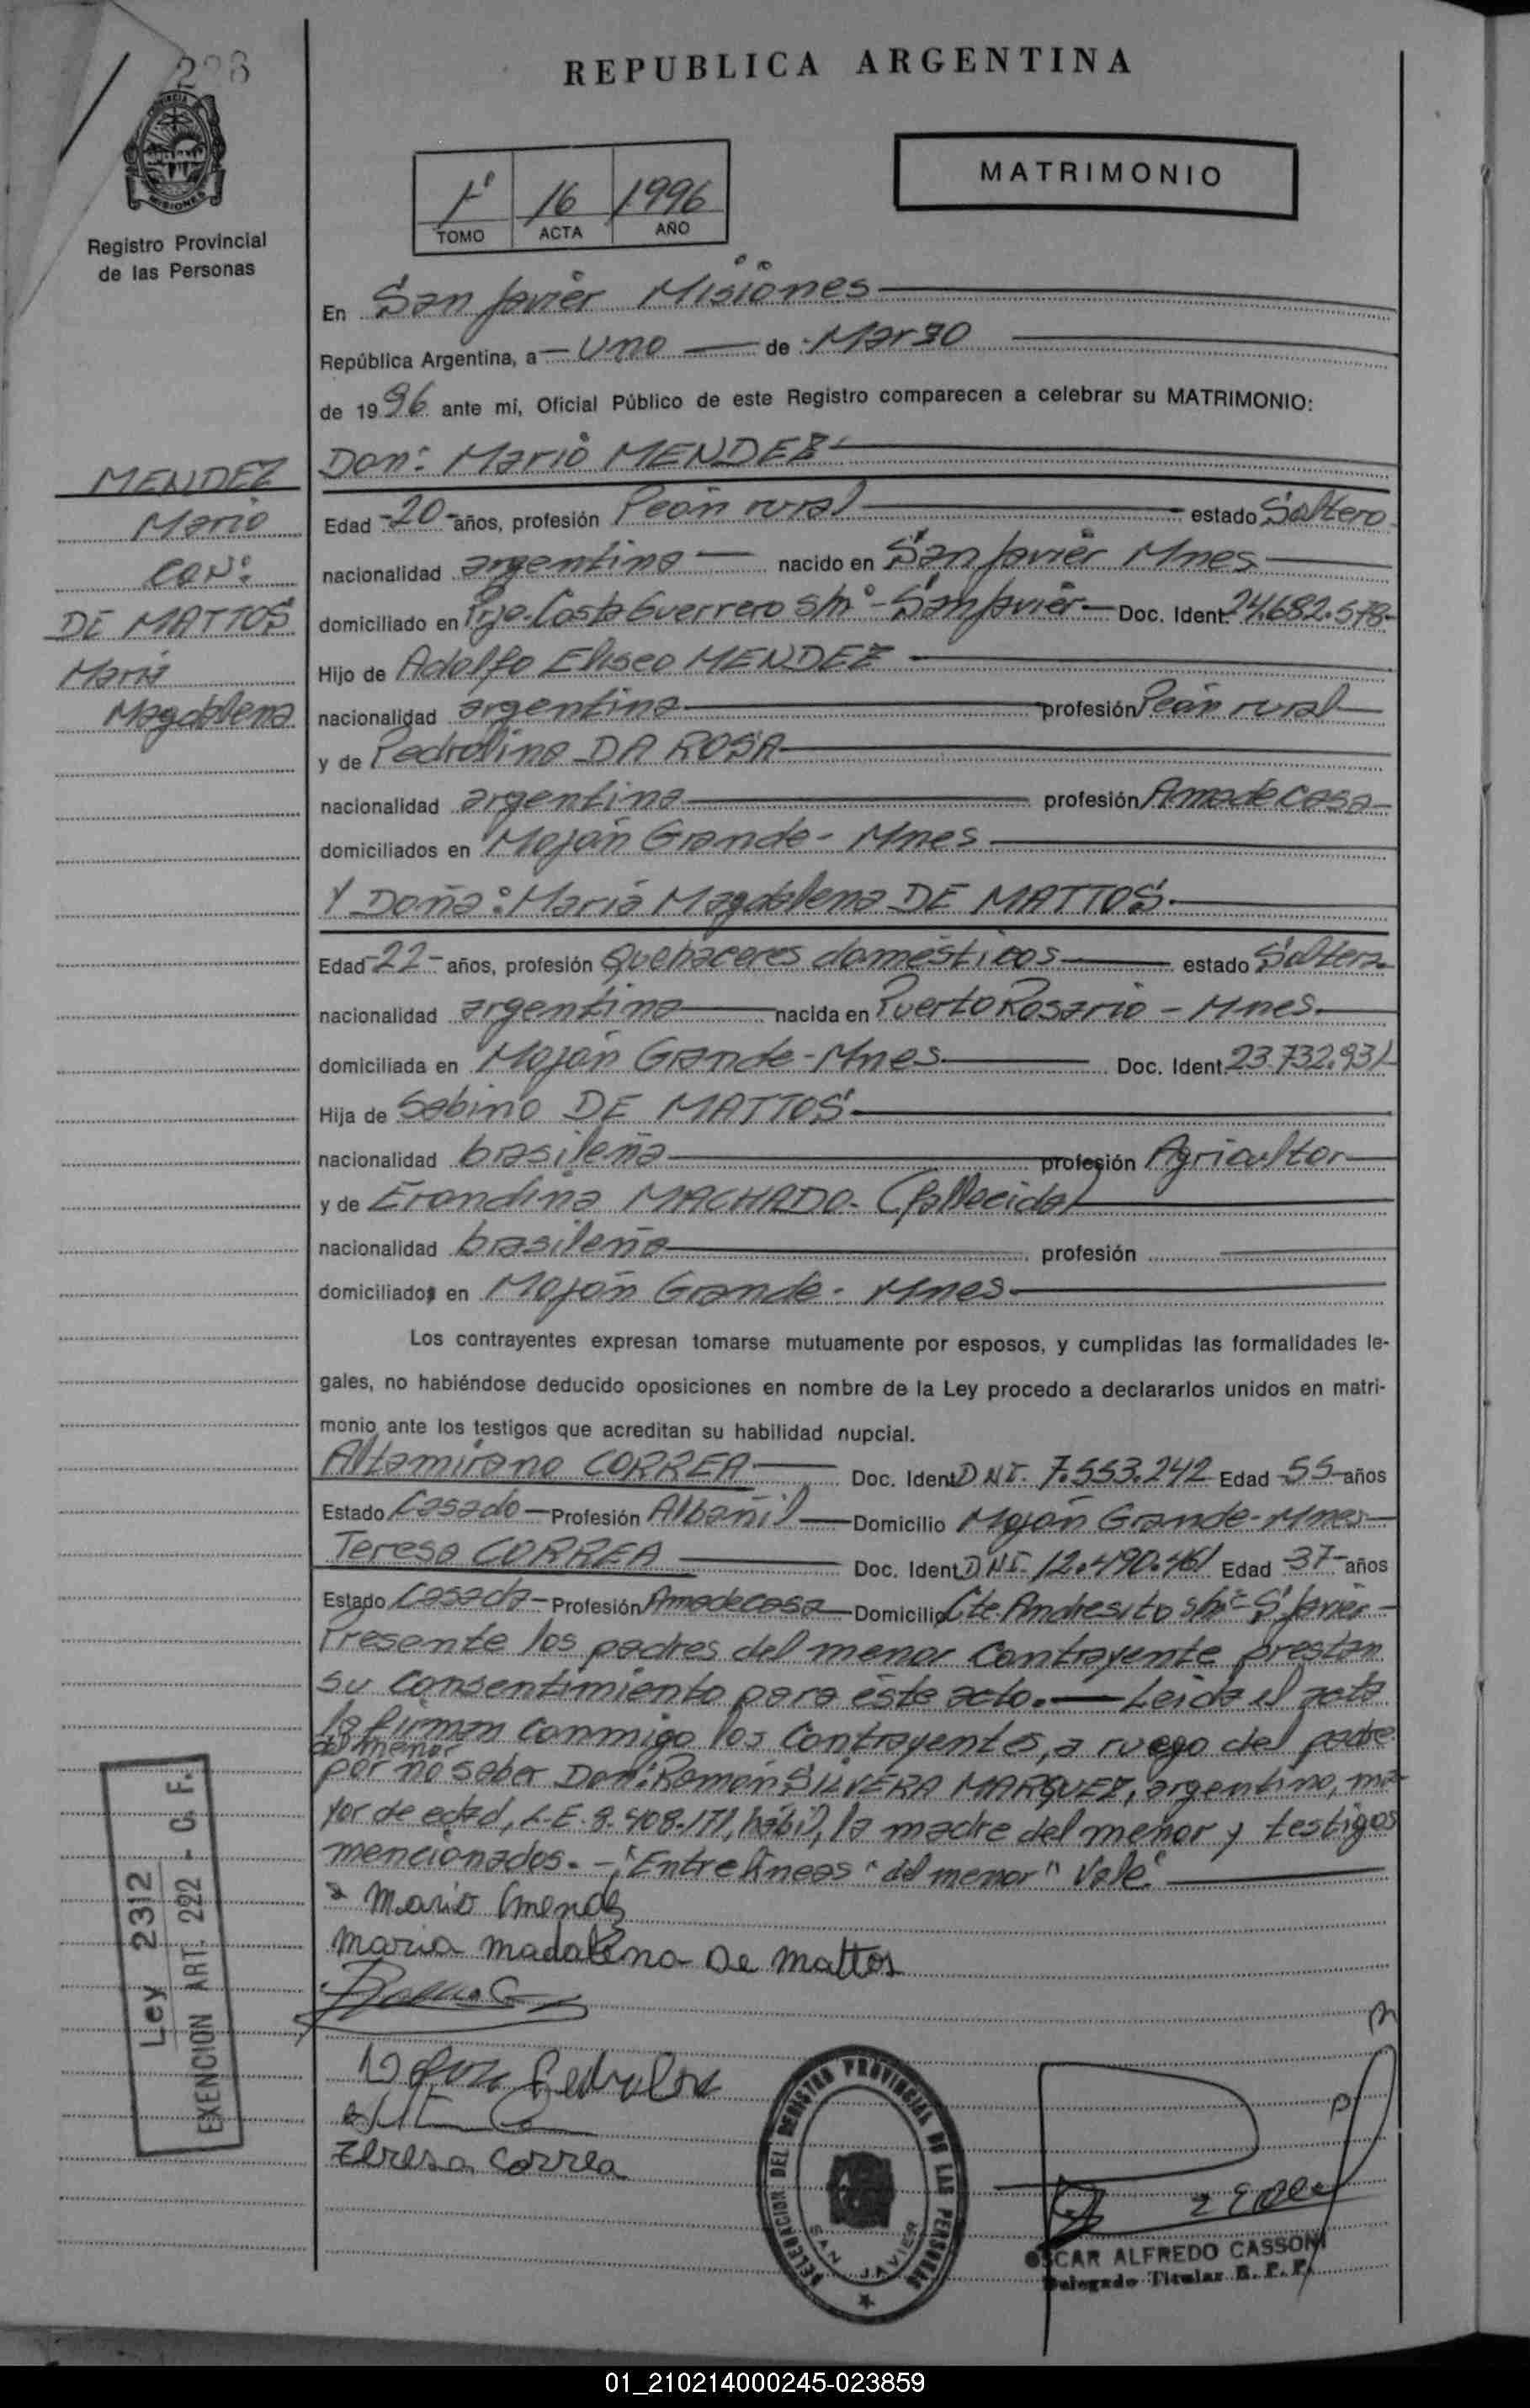 228
REPUBLICA ARGENTINA
MATRIMONIO
1º 16 1996
TOMO ACTA AÑO
PROVINCIA DE
MISIONES
Registro Provincial
de las Personas
En San Javier Misiones
República Argentina, a - Uno de Marzo
de 1996 ante mí, Oficial Público de este Registro comparecen a celebrar su MATRIMONIO:
MENDEZ
Mario
CON:
DE MATTOS
María
Magdalena
Don: Mario MENDEZ
Edad -20- años, profesión Peón rural estado Soltero
nacionalidad argentina nacido en San Javier Mnes
domiciliado en Pje. Costa Guerrero s/nº - San Javier Doc. Ident. 24.682.578-
Hijo de Adolfo Eliseo MENDEZ
nacionalidad argentina profesión Peón rural
y de Pedrolina DA ROSA
nacionalidad argentina profesión Ama de casa
domiciliados en Mojón Grande - Mnes
Y Doña: María Magdalena DE MATTOS
Edad -22- años, profesión Quehaceres domésticos estado Soltera
nacionalidad argentina nacida en Puerto Rosario - Mnes.
domiciliada en Mojón Grande - Mnes Doc. Ident. 23.732.931
Hija de Sabino DE MATTOS
nacionalidad brasileña profesión Agricultor
y de Erondina MACHADO - (fallecida)
nacionalidad brasileña profesión
domiciliados en Mojón Grande - Mnes
Los contrayentes expresan tomarse mutuamente por esposos, y cumplidas las formalidades le-
gales, no habiéndose deducido oposiciones en nombre de la Ley procedo a declararlos unidos en matri-
monio ante los testigos que acreditan su habilidad nupcial.
Altamirano CORREA Doc. Ident DNI. 7.553.242 Edad 55 años
Estado Casado Profesión Albañil Domicilio Mojón Grande - Mnes
Teresa CORREA Doc. Ident. DNI. 12.490.461 Edad 37 años
Estado Casada Profesión Ama de casa Domicilio Cte. Andresito s/nº S. Javier
Presente los padres del menor contrayente prestan
su consentimiento para éste acto. Leída el acta
la firman conmigo los contrayentes, a ruego del padre
del menor
por no saber Don: Ramón SILVERA MARQUEZ, argentino, ma-
yor de edad, L.E. 8.408.171, hábil, la madre del menor y testigos
mencionados. - "Entrelíneas "del menor" Vale.
Mario Mendez
maria madalena De mattos
Teresa Correa
Ley 2312
EXENCION ART. 222 - C. F.
DELEGACION DEL REGISTRO PROVINCIAL DE LAS PERSONAS
SAN JAVIER
OSCAR ALFREDO CASSONI
Delegado Titular R. P. P.
01_210214000245-023859